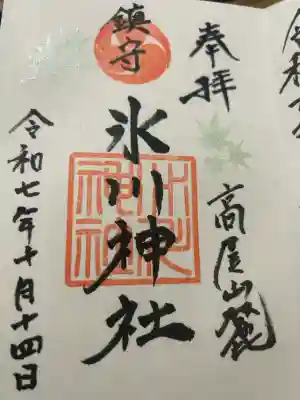 奉拝
高尾山麓
鎮守
氷川神社
氷川神社
令和七年十月十四日